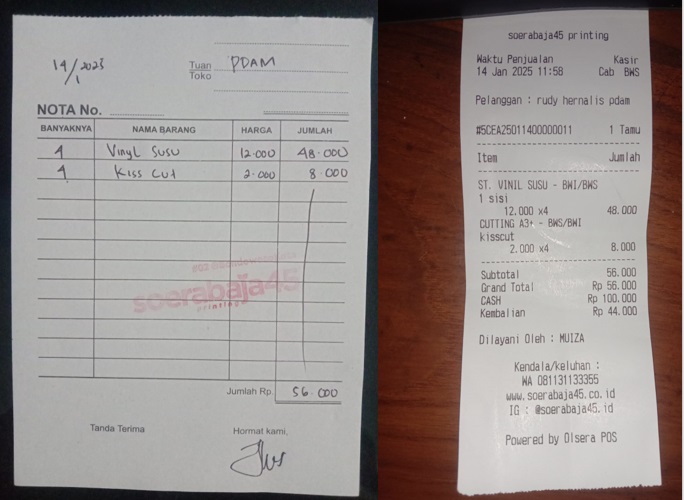 14/1 2023
Tuan PDAM
Toko
NOTA No.
BANYAKNYA NAMA BARANG HARGA JUMLAH
4 Vinyl susu 12.000 48.000
4 Kiss cut 2.000 8.000
soerabaja45
printing
Jumlah Rp. 56.000
Tanda Terima Hormat kami,
soerabaja45 printing
Waktu Penjualan Kasir
14 Jan 2025 11:58 Cab BWS
Pelanggan : rudy hernalis pdam
#5CEA25011400000011 1 Tamu
Item Jumlah
ST. VINIL SUSU - BWI/BWS
1 sisi
12.000 x4 48.000
CUTTING A3+ - BWS/BWI
kisscut
2.000 x4 8.000
Subtotal 56.000
Grand Total Rp 56.000
CASH Rp 100.000
Kembalian Rp 44.000
Dilayani Oleh : MUIZA
Kendala/keluhan :
WA 081131133355
www.soerabaja45.co.id
IG : @soerabaja45.id
Powered by Olsera POS